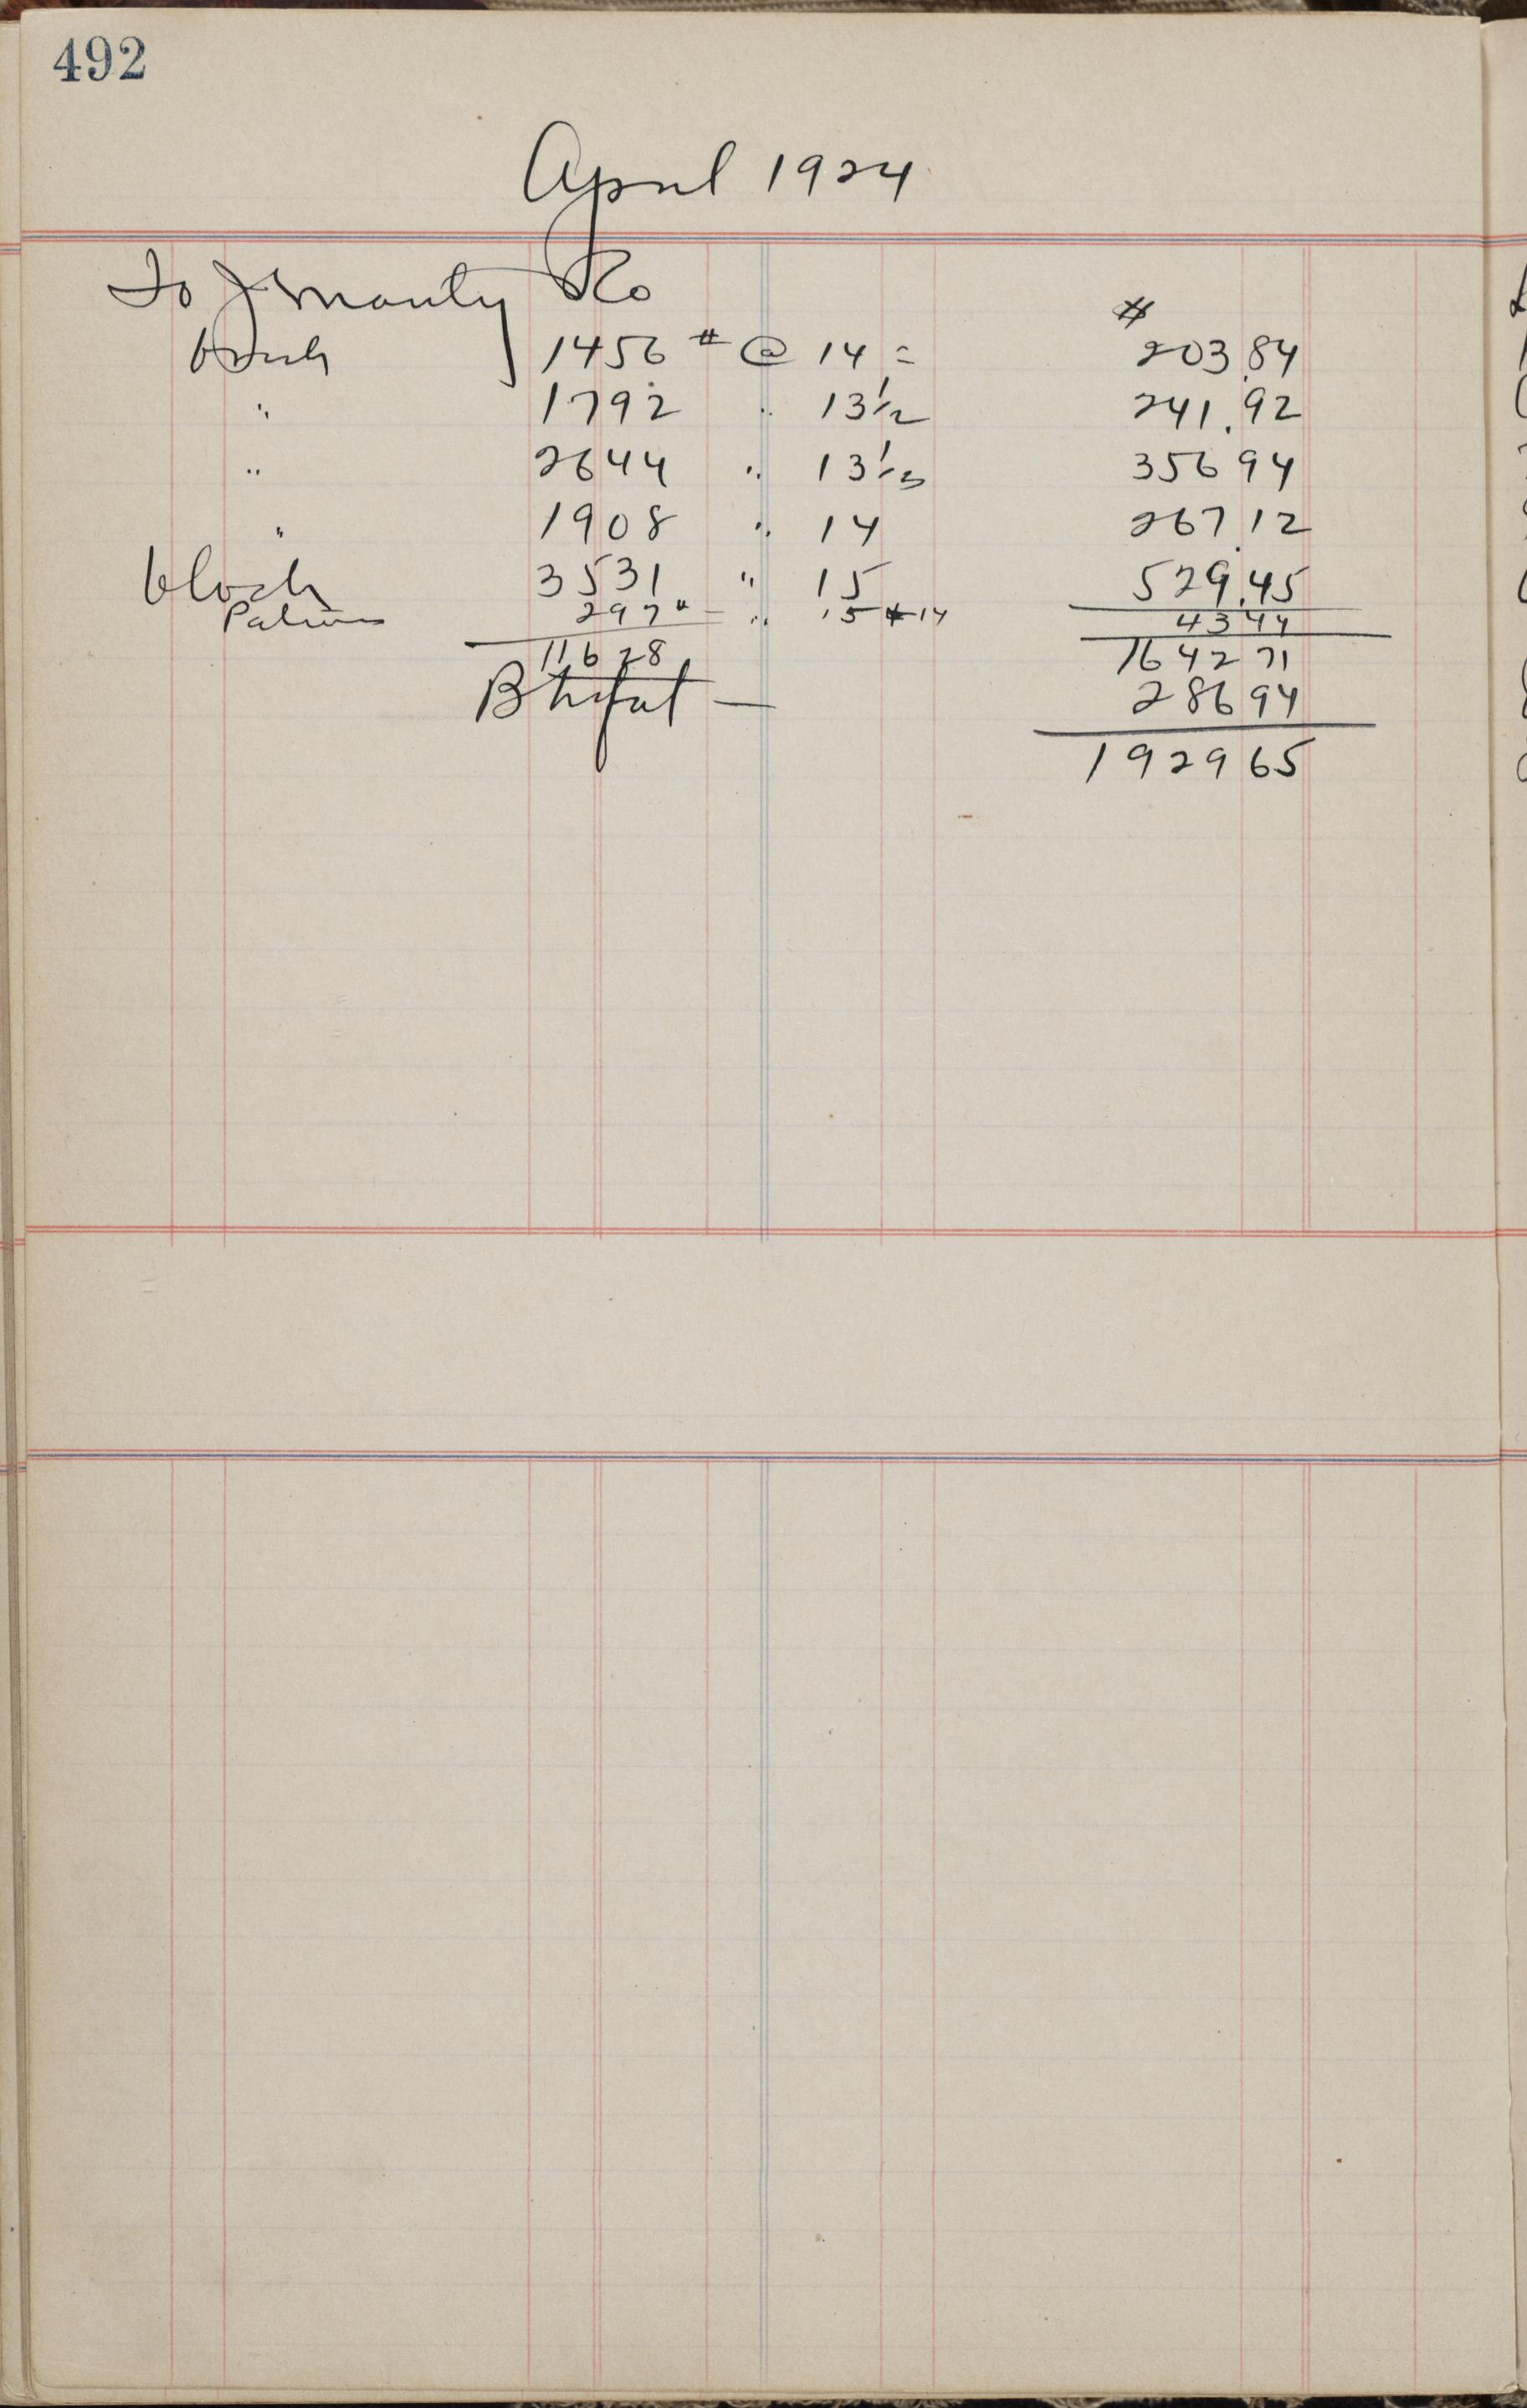 492
April 1924
To J Manty Co
$
brick 1456 # @ 14 = 203.84
" 1792 " 13 1/2 241.92
" 2644 " 13 1/2 356 94
" 1908 " 14 267.12
block 3531 " 15 529.45
297 # - " 15 + 14 43 44
11628 1642 71
B 286 94
1929 65